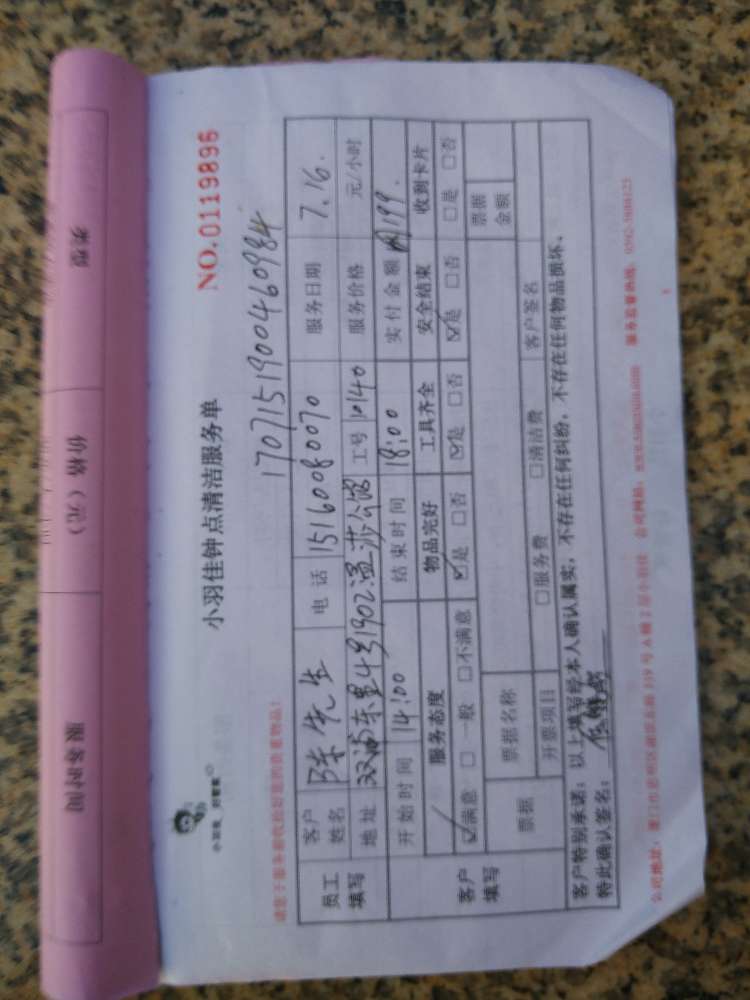 类型
价格（元）
服务时间
小羽佳钟点清洁服务单
NO.0119896
170715190046 0984
员工填写
客户姓名 陈先生 电话 15160080070 服务日期 7.16.
地址 工号 10140 服务价格 元/小时
开始时间 14:00 结束时间 18:00 实付金额 199.
客户填写
服务态度 物品完好 工具齐全 安全结束 收到卡片
☑满意 □一般 □不满意 ☑是 □否 ☑是 □否 ☑是 □否 □是 □否
票据 票据名称 票据金额
开票项目 □服务费 □清洁费 客户签名
客户特别承诺：以上填写经本人确认属实，不存在任何纠纷，不存在任何物品损坏。
特此确认签名：
公司地址： 公司网站： 服务监督热线：0592-5886125